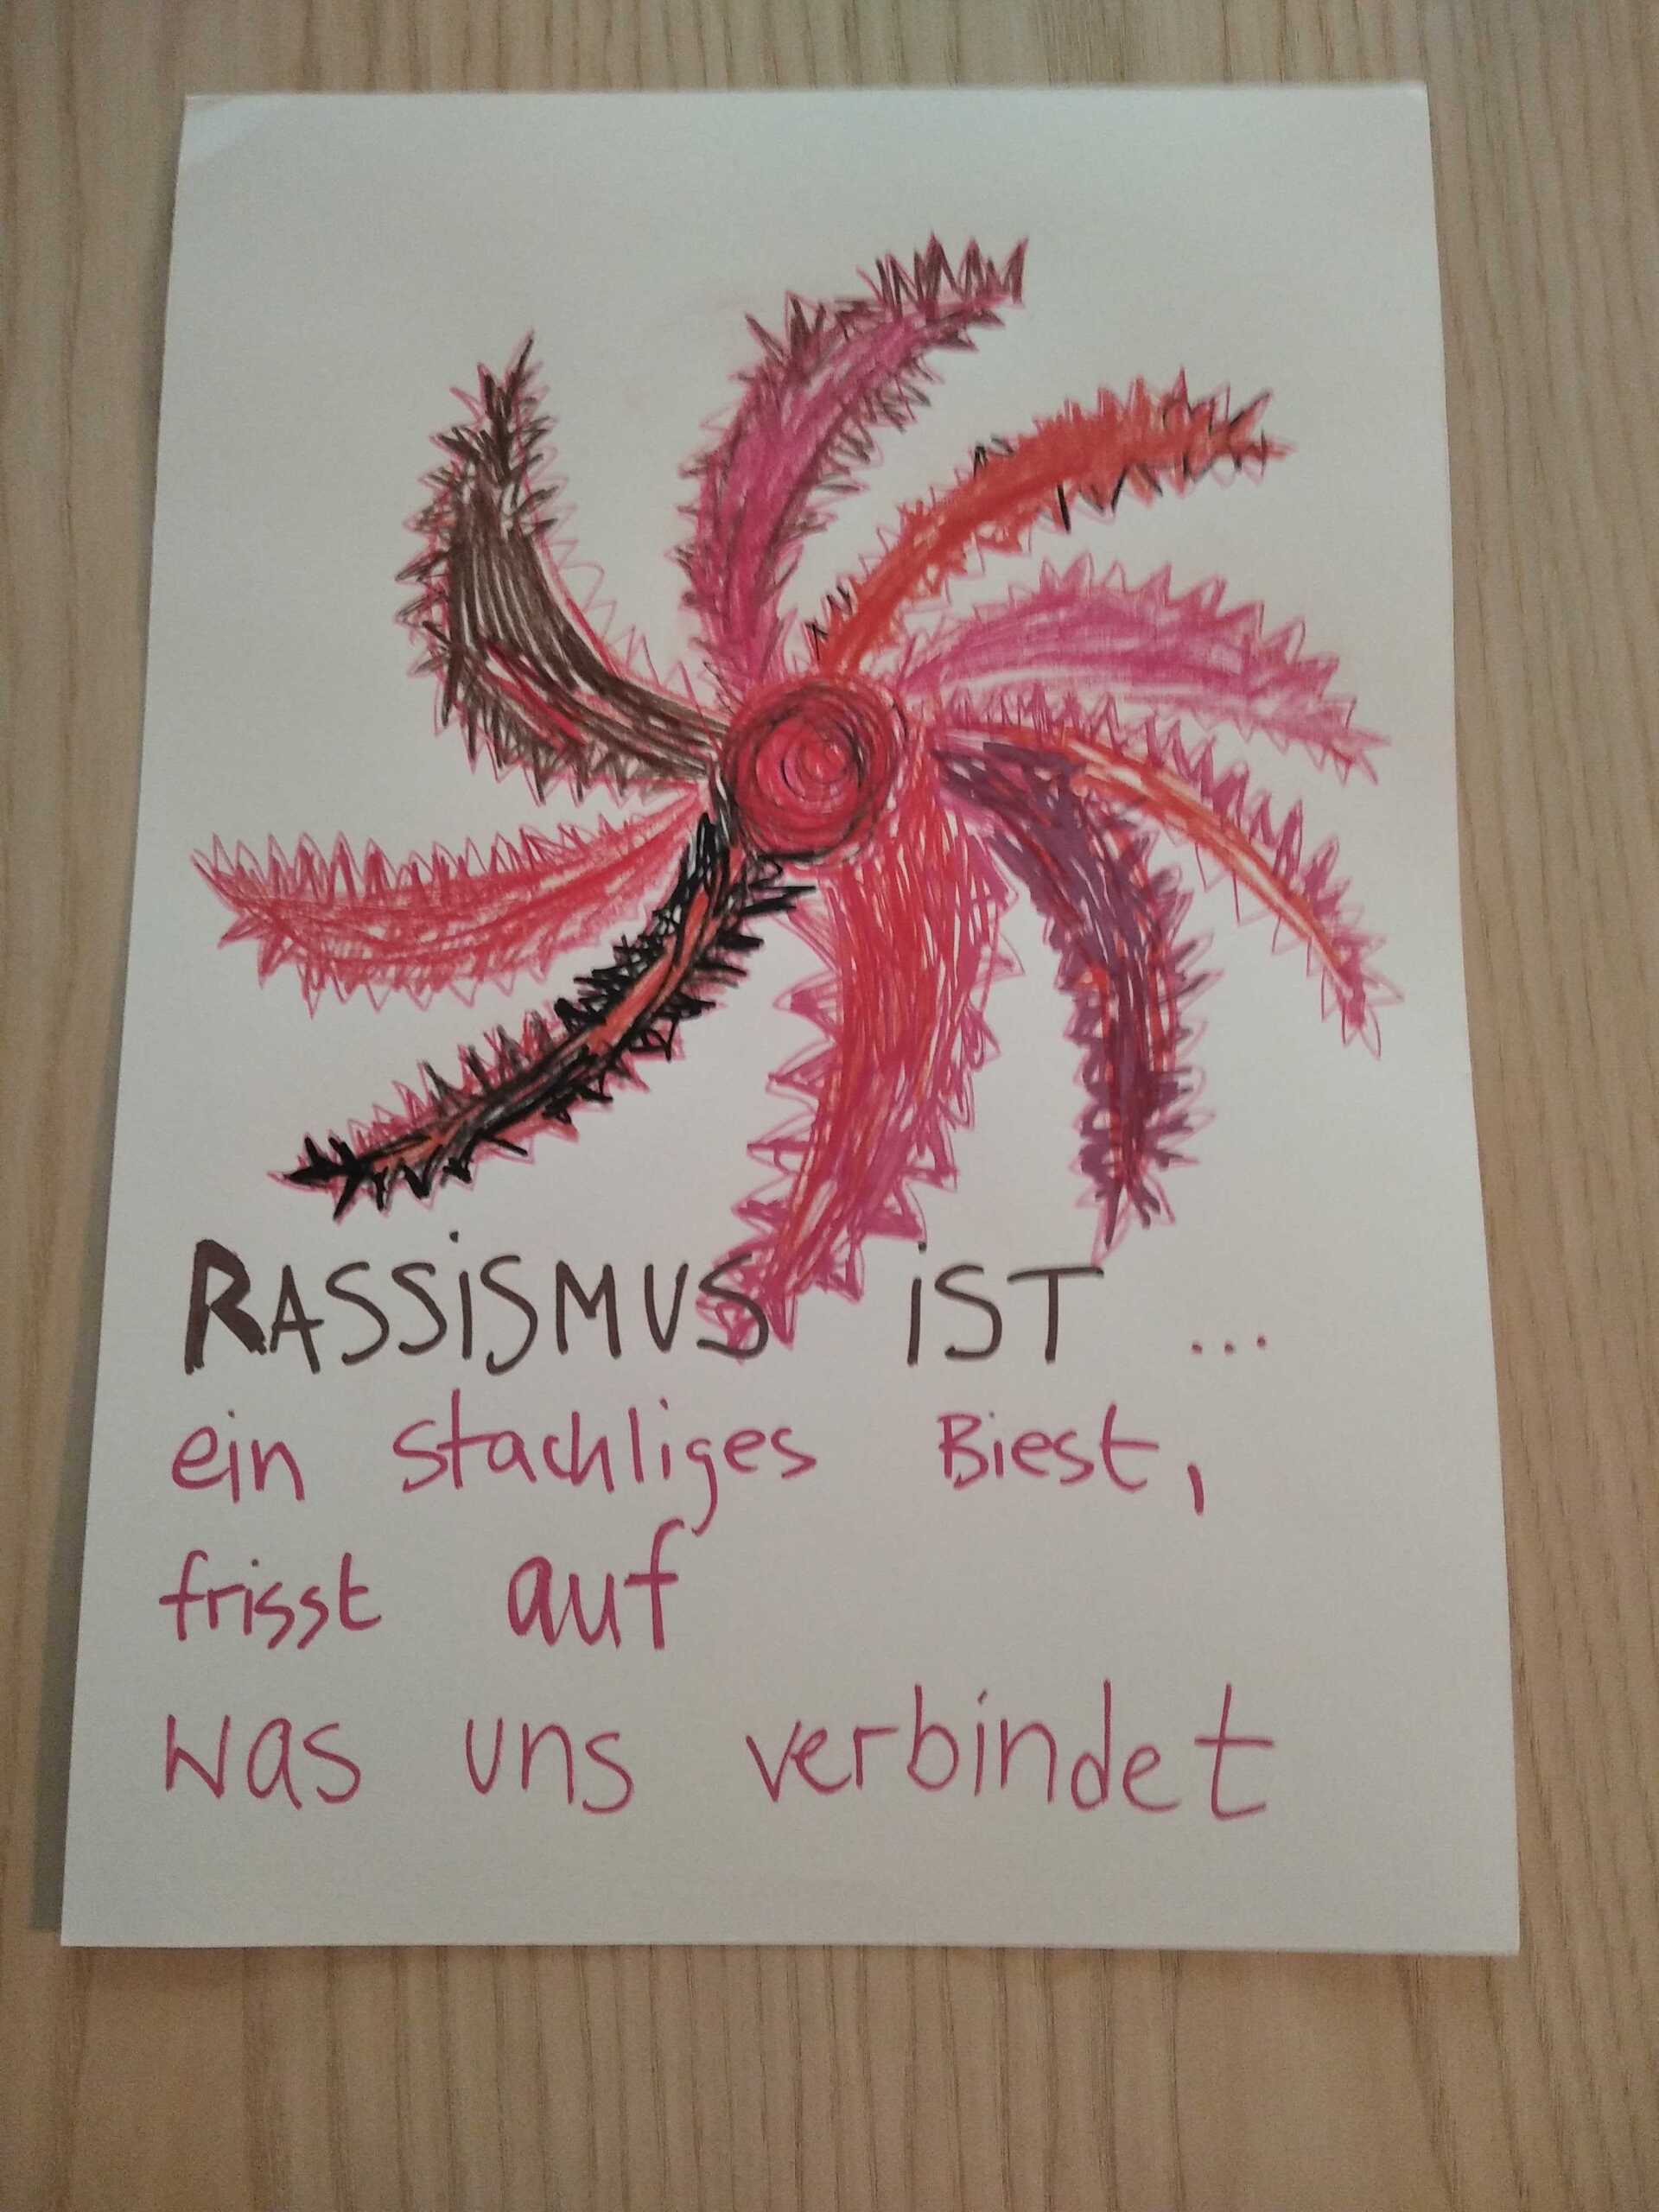 RASSiSMUS iST ...
ein stachliges Biest,
frisst auf
was uns verbindet